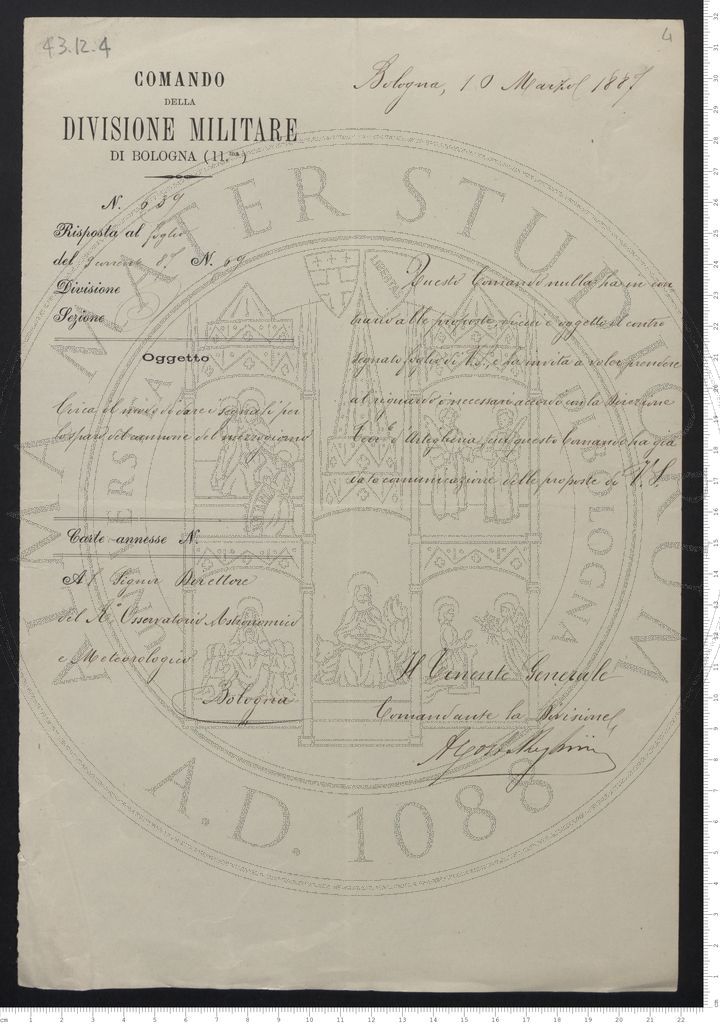 43.12.4
4
COMANDO
DELLA
DIVISIONE MILITARE
DI BOLOGNA (11.ma)
Bologna, 10 Marzo 1887
N. 639
Risposta al foglio
del 9 corrente N. 69
Divisione
Sezione
Oggetto
Circa il modo di dare i segnali per
lo sparo del cannone del mezzogiorno
Carte annesse N.
Al Signor Direttore
del Ro Osservatorio Astronomico
e Meteorologico
Bologna
Questo Comando nulla ha in con
trario alle proposte, di cui è oggetto il contro
segnato foglio di V.S., e la invita a voler prendere
al riguardo i necessari accordi colla Direzione
Terr.e d'Artiglieria, cui questo Comando ha già
dato comunicazione delle proposte di V. S.
Il Tenente Generale
Comandante la Divisione
ALMA MATER STUDIORUM
A.D. 1088